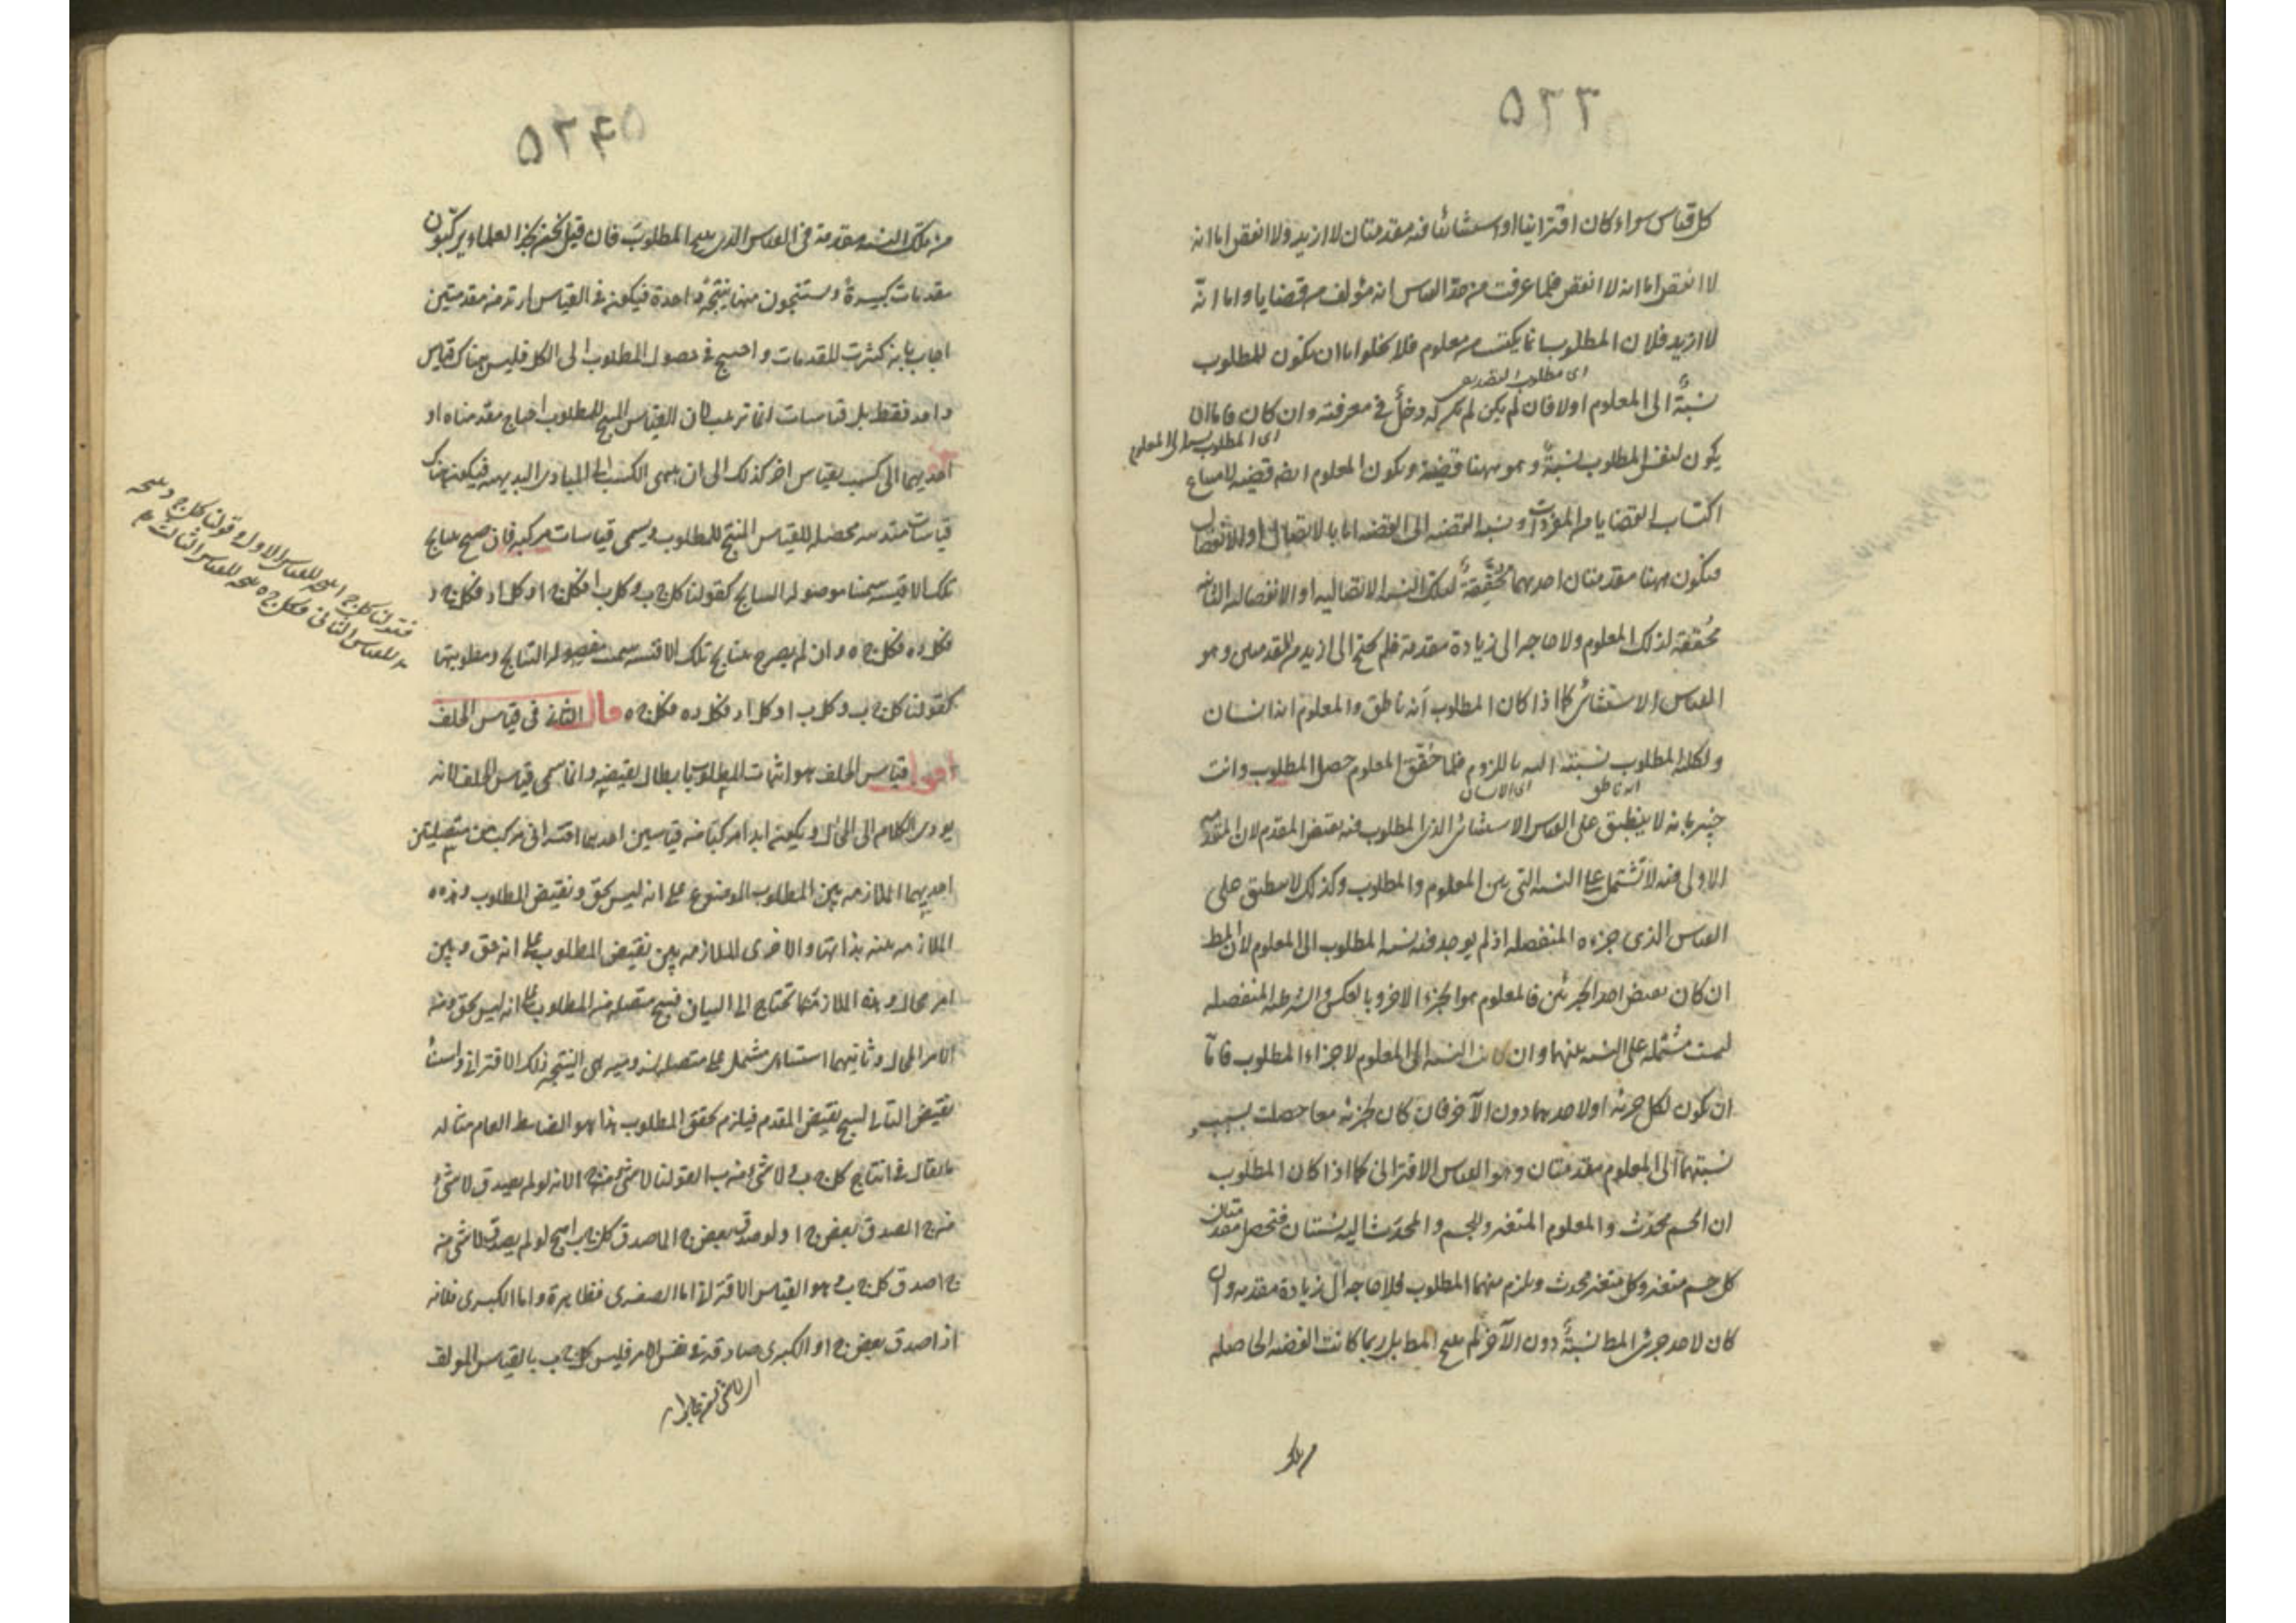 ٥٢٣
كل قياس سواء كان اقترانيا او استثنائيا فيه مقدمتان لا ازيد ولا انقص اما انه
لا انقص اما انه لا انقص فلما عرفت من حد القياس انه مؤلف من قضايا واما انه
لا ازيد فلان المطلوب انما يكتسب من معلوم فلا يخلوا اما ان يكون للمطلوب
اى مطلوب التصديق
نسبة الى المعلوم اولا فان لم يكن لم يكن له دخل في معرفته وان كان فاما ان
اى المطلوب نسبة الى المعلوم
يكون لنفس المطلوب نسبة وهو ههنا قضية ويكون المعلوم ايضا قضية لامتناع
اكتساب القضايا من المفردات ونسبة القضية الى القضية اما بالاتصال او الانفصال
فيكون ههنا مقدمتان احديهما محققة لتلك النسبة الاتصالية او الانفصالية الثانية
محققة لذلك المعلوم ولا حاجة الى زيادة مقدمة فلم يحتج الى ازيد من المقدمتين وهو
القياس الاستثنائى كما اذا كان المطلوب انه ناطق والمعلوم انه انسان
ولكلية المطلوب نسبته اليه باللزوم فلما حقق المعلوم حصل المطلوب وانت
انه ناطق اى الانسان
خبير بانه لا ينطبق على القياس الاستثنائى الذى المطلوب فيه نقيض المقدم لان المقدمة
الاولى فيه لا تشتمل على النسبة التى بين المعلوم والمطلوب وكذلك لا ينطبق على
القياس الذى جزءه المنفصلة اذ لم يوجد فيه نسبة المطلوب الى المعلوم لان المط
ان كان نقيض احد الجزئين فالمعلوم هو الجزء الاخر وبالعكس والشرطية المنفصلة
ليست مشتملة على النسبة بينهما وان كانت النسبة الى المعلوم لاجزاء المطلوب فاما
ان يكون لكل جزء او لاحديهما دون الآخر فان كان لجزئيه معا حصلت بسبب
نسبتهما الى المعلوم مقدمتان وهو القياس الاقترانى كما اذا كان المطلوب
ان الجسم محدث والمعلوم المتغير وللجسم والمحدث اليه نسبتان فتحصل مقدمتان
كل جسم متغير وكل متغير محدث ويلزم منهما المطلوب فلا حاجة الى زيادة مقدمة وان
كان لاحد جزئى المط نسبة دون الآخر لم ينتج المط بل ربما كانت القضية الحاصلة
٥٢٤
من تلك النسبة مقدمة فى القياس الذى ينتج المطلوب فان قيل نحن نجد العلماء يركبون
مقدمات كثيرة ويستنتجون منها نتيجة واحدة فيكون فى القياس ازيد من مقدمتين
اجاب بانه كثرت المقدمات واحتيج فى حصول المطلوب الى الكل فليس هناك قياس
واحد فقط بل قياسات انما ترتب لان القياس المنتج للمطلوب احتاج مقدمتاه او
احديهما الى كسب بقياس اخر كذلك الى ان ينتهى الكسب الى المبادى البديهية فيكون هناك
قياسات مترتبة محصلة للقياس المنتج للمطلوب ويسمى قياسات مركبة فان صرح بنتايج
تلك الاقيسة سميت موصولة النتايج كقولنا كل ج ب وكل ب ا فكل ج ا وكل ا د فكل ج د
وكل د ه فكل ج ه وان لم يصرح بنتايج تلك الاقيسة سميت مفصولة النتايج ومطلوبها
كقولنا كل ج ب وكل ب ا وكل ا د وكل د ه فكل ج ه قال الثانى فى قياس الخلف
اقول قياس الخلف هو اثبات المطلوب بابطال نقيضه وانما سمى قياس الخلف لانه
يؤدى الكلام الى المحال ويكون ابدا مركبا من قياسين احدهما اقترانى مركب من متصلتين
احديهما الملازمة بين المطلوب الموضوع على انه ليس بحق ونقيض المطلوب وهذه
الملازمة بينة بذاتها والاخرى الملازمة بين نقيض المطلوب على انه حق وبين
امر محال وهذه الملازمة ربما تحتاج الى البيان فينتج متصلة من المطلوب على انه ليس بحق ومن
الامر المحال وثانيهما استثنائى مشتمل على متصلة لزومية هى النتيجة ذلك الاقترانى واستثناء
نقيض التالى لينتج نقيض المقدم فيلزم تحقق المطلوب هذا هو الضابط العام مثاله
ما يقال فى انتاج كل ج ب ولا شئ من ب ا لقولنا لا شئ من ج ا لانه لو لم يصدق لا شئ
من ج ا لصدق بعض ج ا ولو صدق بعض ج ا لما صدق كل ج ب ينتج لو لم يصدق لا شئ من
ج ا صدق كل ج ب وهو القياس الاقترانى اما الصغرى فظاهرة واما الكبرى فلانه
اذا صدق بعض ج ا والكبرى صادقة فى نفس الامر فليس كل ج ب بالقياس المؤلف
فقولنا كل ج ا نتيجة للقياس الاول وقولنا كل ج د نتيجة
للقياس الثانى وكل ج ه نتيجة للقياس الثالث